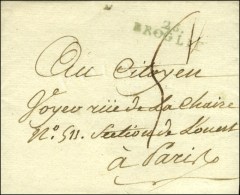 26
BROGLIE
5
Au Citoyen
Royer rüe de La Chaise
N.º 511. Section de Louest
à Paris